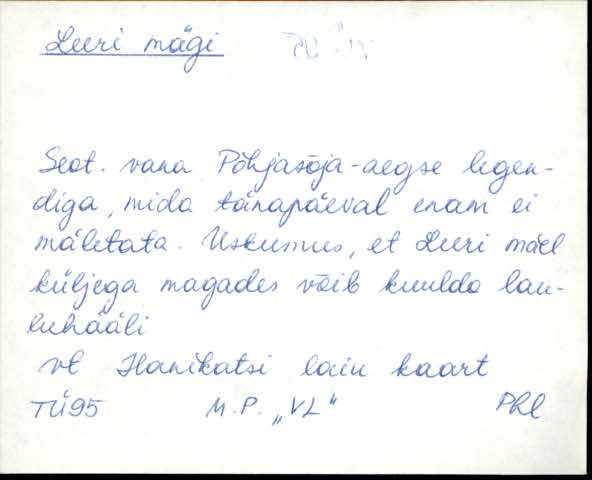 Leeri mägi
Seot. vana Põhjasõja-aegse legen-
diga, mida tänapäeval enam ei
mäletata. Uskumus, et Leeri mäel
küljega magades võib kuulda lau-
luhääli
vt Hanikatsi laiu kaart
TÜ95 M.P. „VL" PKl